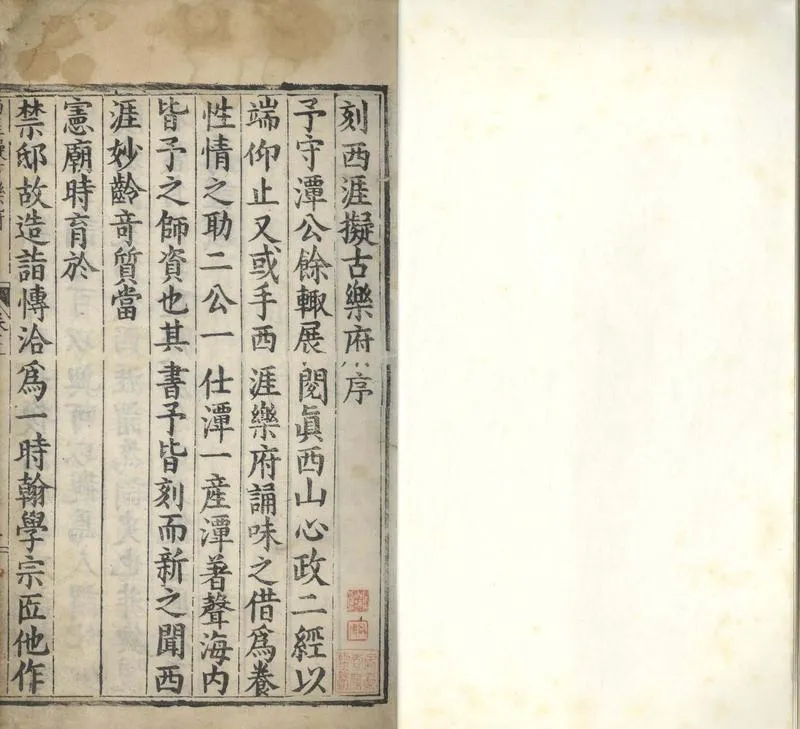 刻西涯擬古樂府序
予守潭公餘輙展閱眞西山心政二經以
端仰止又或手西涯樂府誦味之借爲養
性情之助二公一仕潭一産潭著聲海内
皆予之師資也其書予皆刻而新之聞西
涯妙齡竒質當
憲廟時育於
禁邸故造詣慱洽爲一時翰學宗匠他作